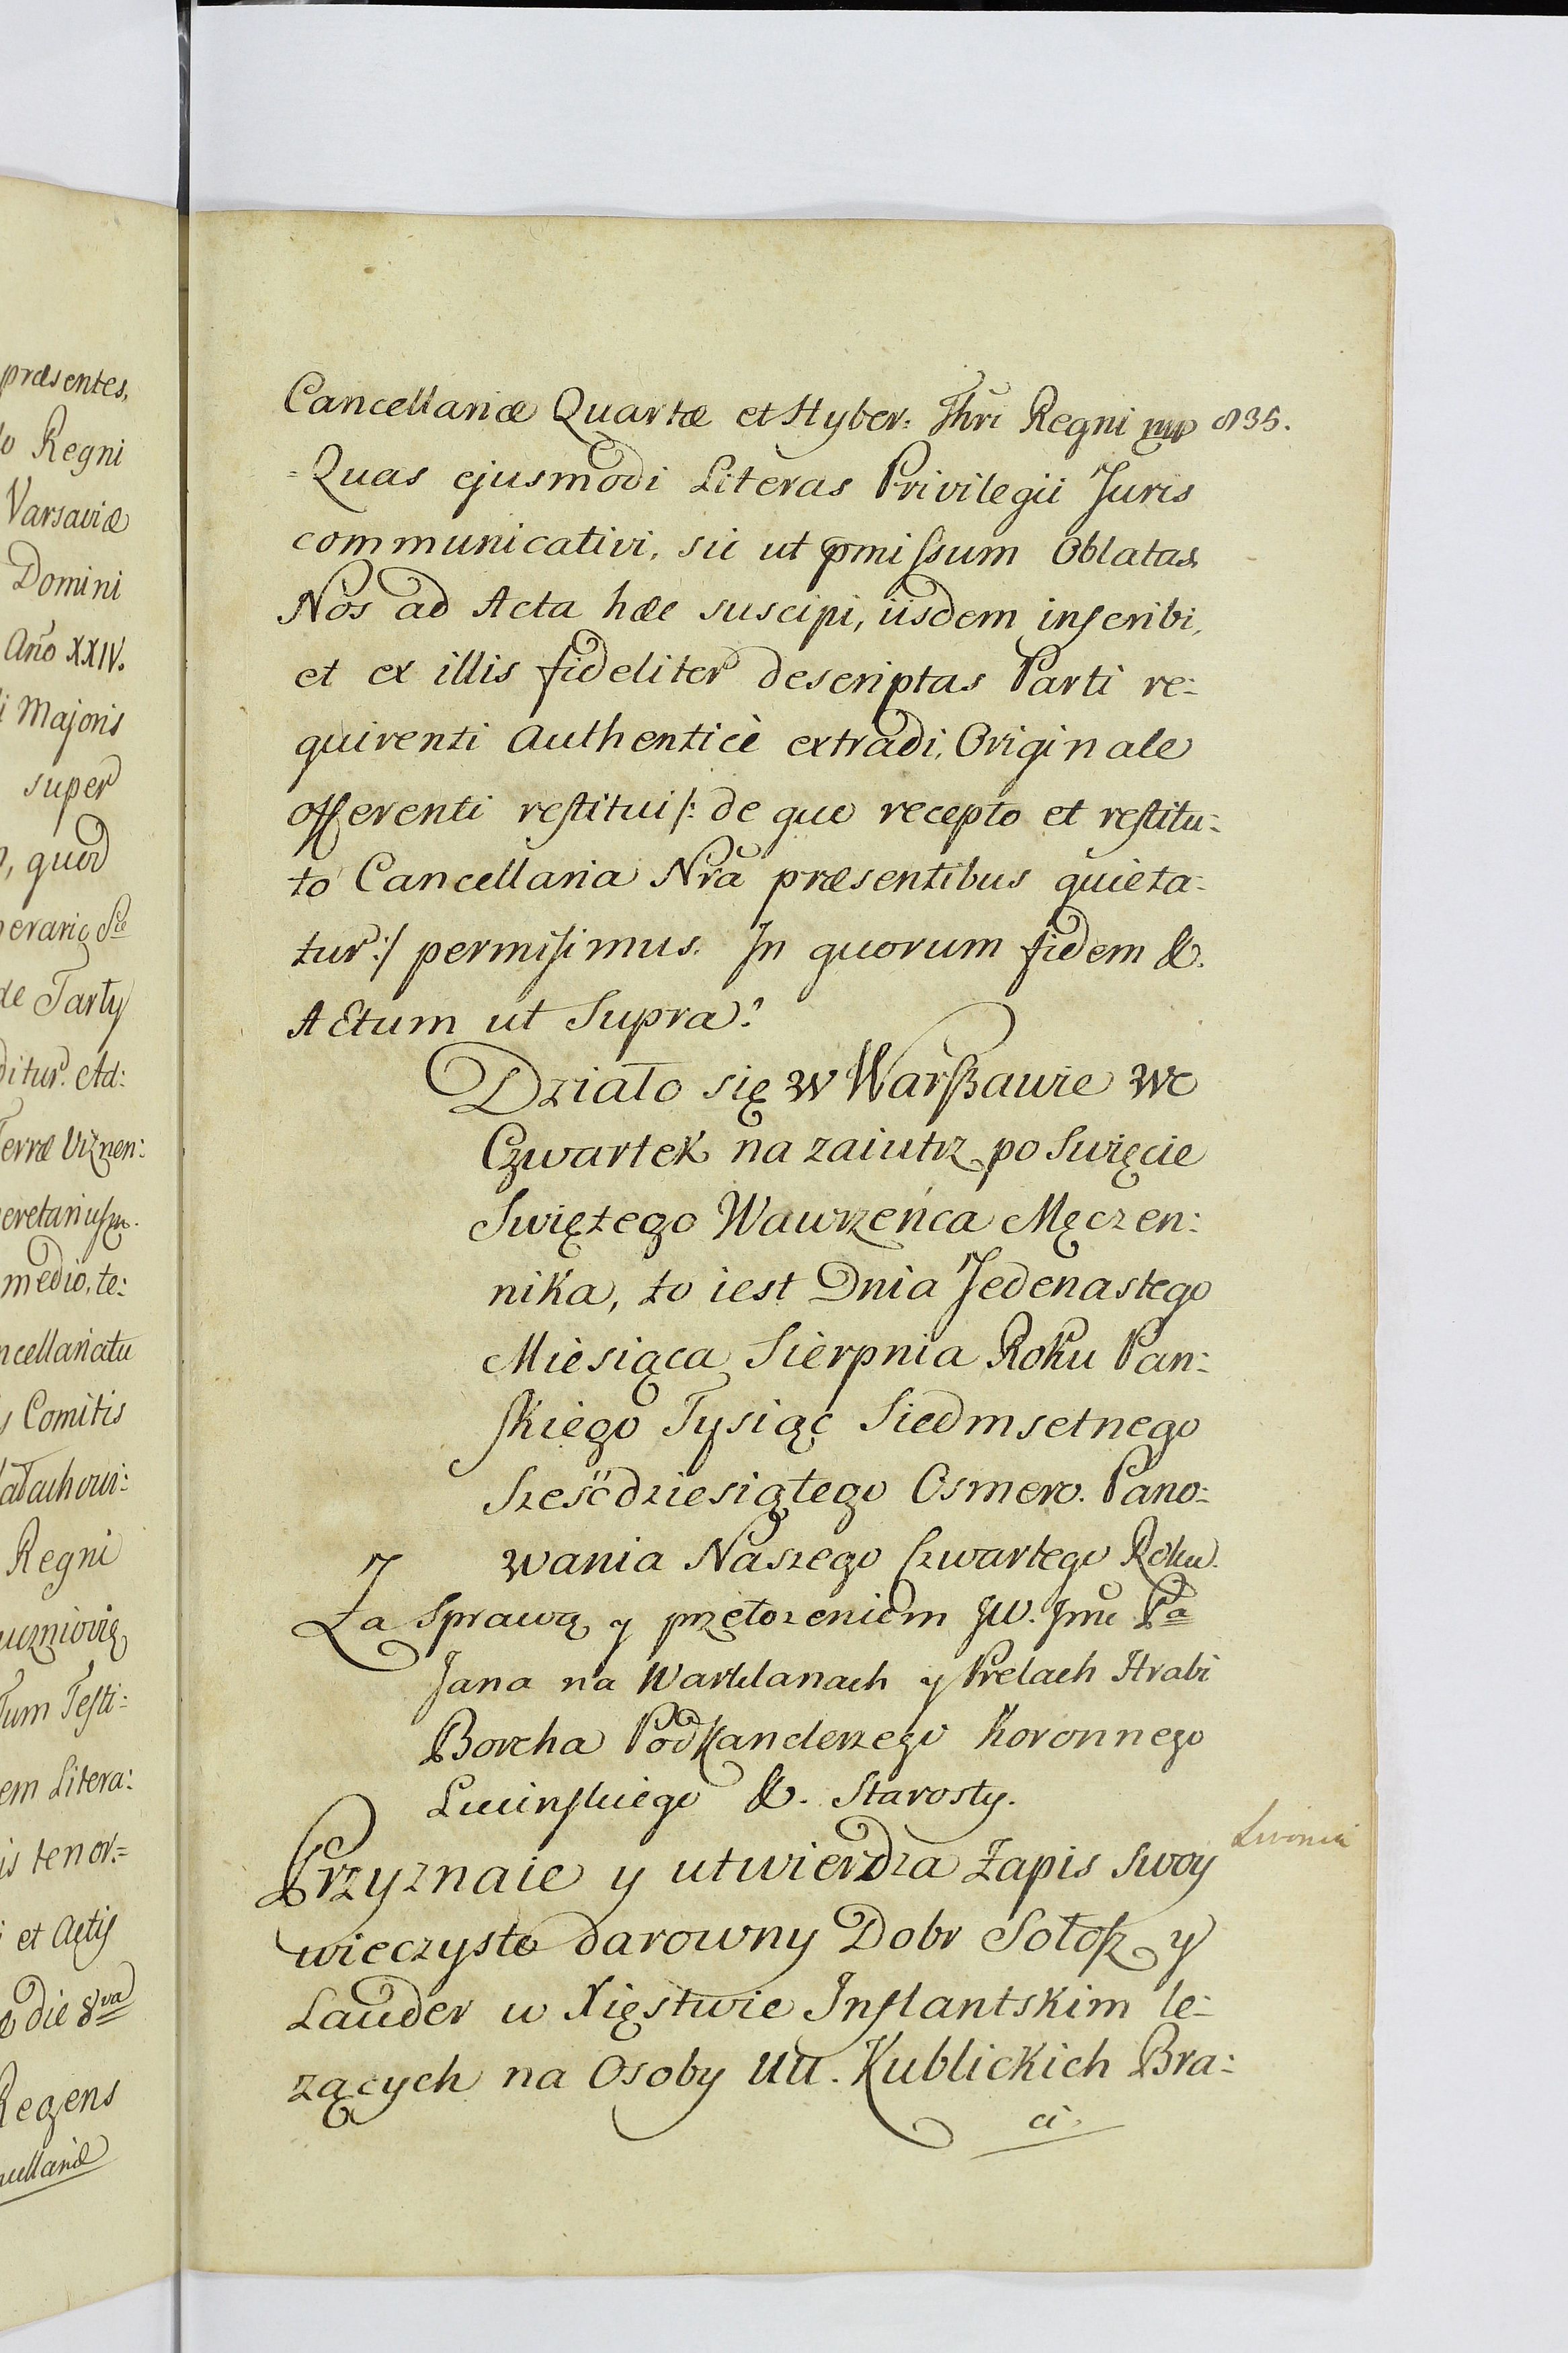 præsentes,
Regni
Varsaviæ
Domini
Año XXIV.
Majoris
super
quod
de Tarty
ditur. Ad:
Terræ Viznen:
medio, te:
ncellariatu
Comitis
Regni
Tum Testi:
em Litera:
is tenor.=
et Actis
die 8va
Regens
Cancellariæ Quartæ et Hyber: Thri Regni mp 835.
=Quas ejusmodi Literas Privilegii Juris
communicativi, sic ut pmissum Oblatas
Nos ad Acta hæc suscipi, iisdem inscribi,
et ex illis fideliter descriptas Parti re=
quirenti Authenticè extradi, Originale
offerenti restitui /: de quo recepto et restitu=
to Cancellaria Nrã præsentibus quieta=
tur :/ permisimus. In quorum fidem &.
Actum ut Supra.
Działo się w Warszawie we
Czwartek na zaiutrz po Swięcie
Swiętego Wawrzeńca Męczen:
nika, to iest Dnia Jedenastego
Miesiąca Sierpnia Roku Pan:
skiego Tysiąc Siedmsetnego
Sześćdziesiątego Osmero. Pano:
wania Naszego Czwartego Roku.
Za Sprawą y przełożeniem JW. Jmć Pa
Jana na Warklanach y Prelach Hrabi
Borcha Podkanclerzego Koronnego
Lucinskiego &. Starosty.
Przyznaie y utwierdza Zapis Swoy Livonia
wieczysto darowny Dobr Sołosz y
Lauder w Xięstwie Inflantskim le=
zących na Osoby UU. Kublickich Bra:
ci